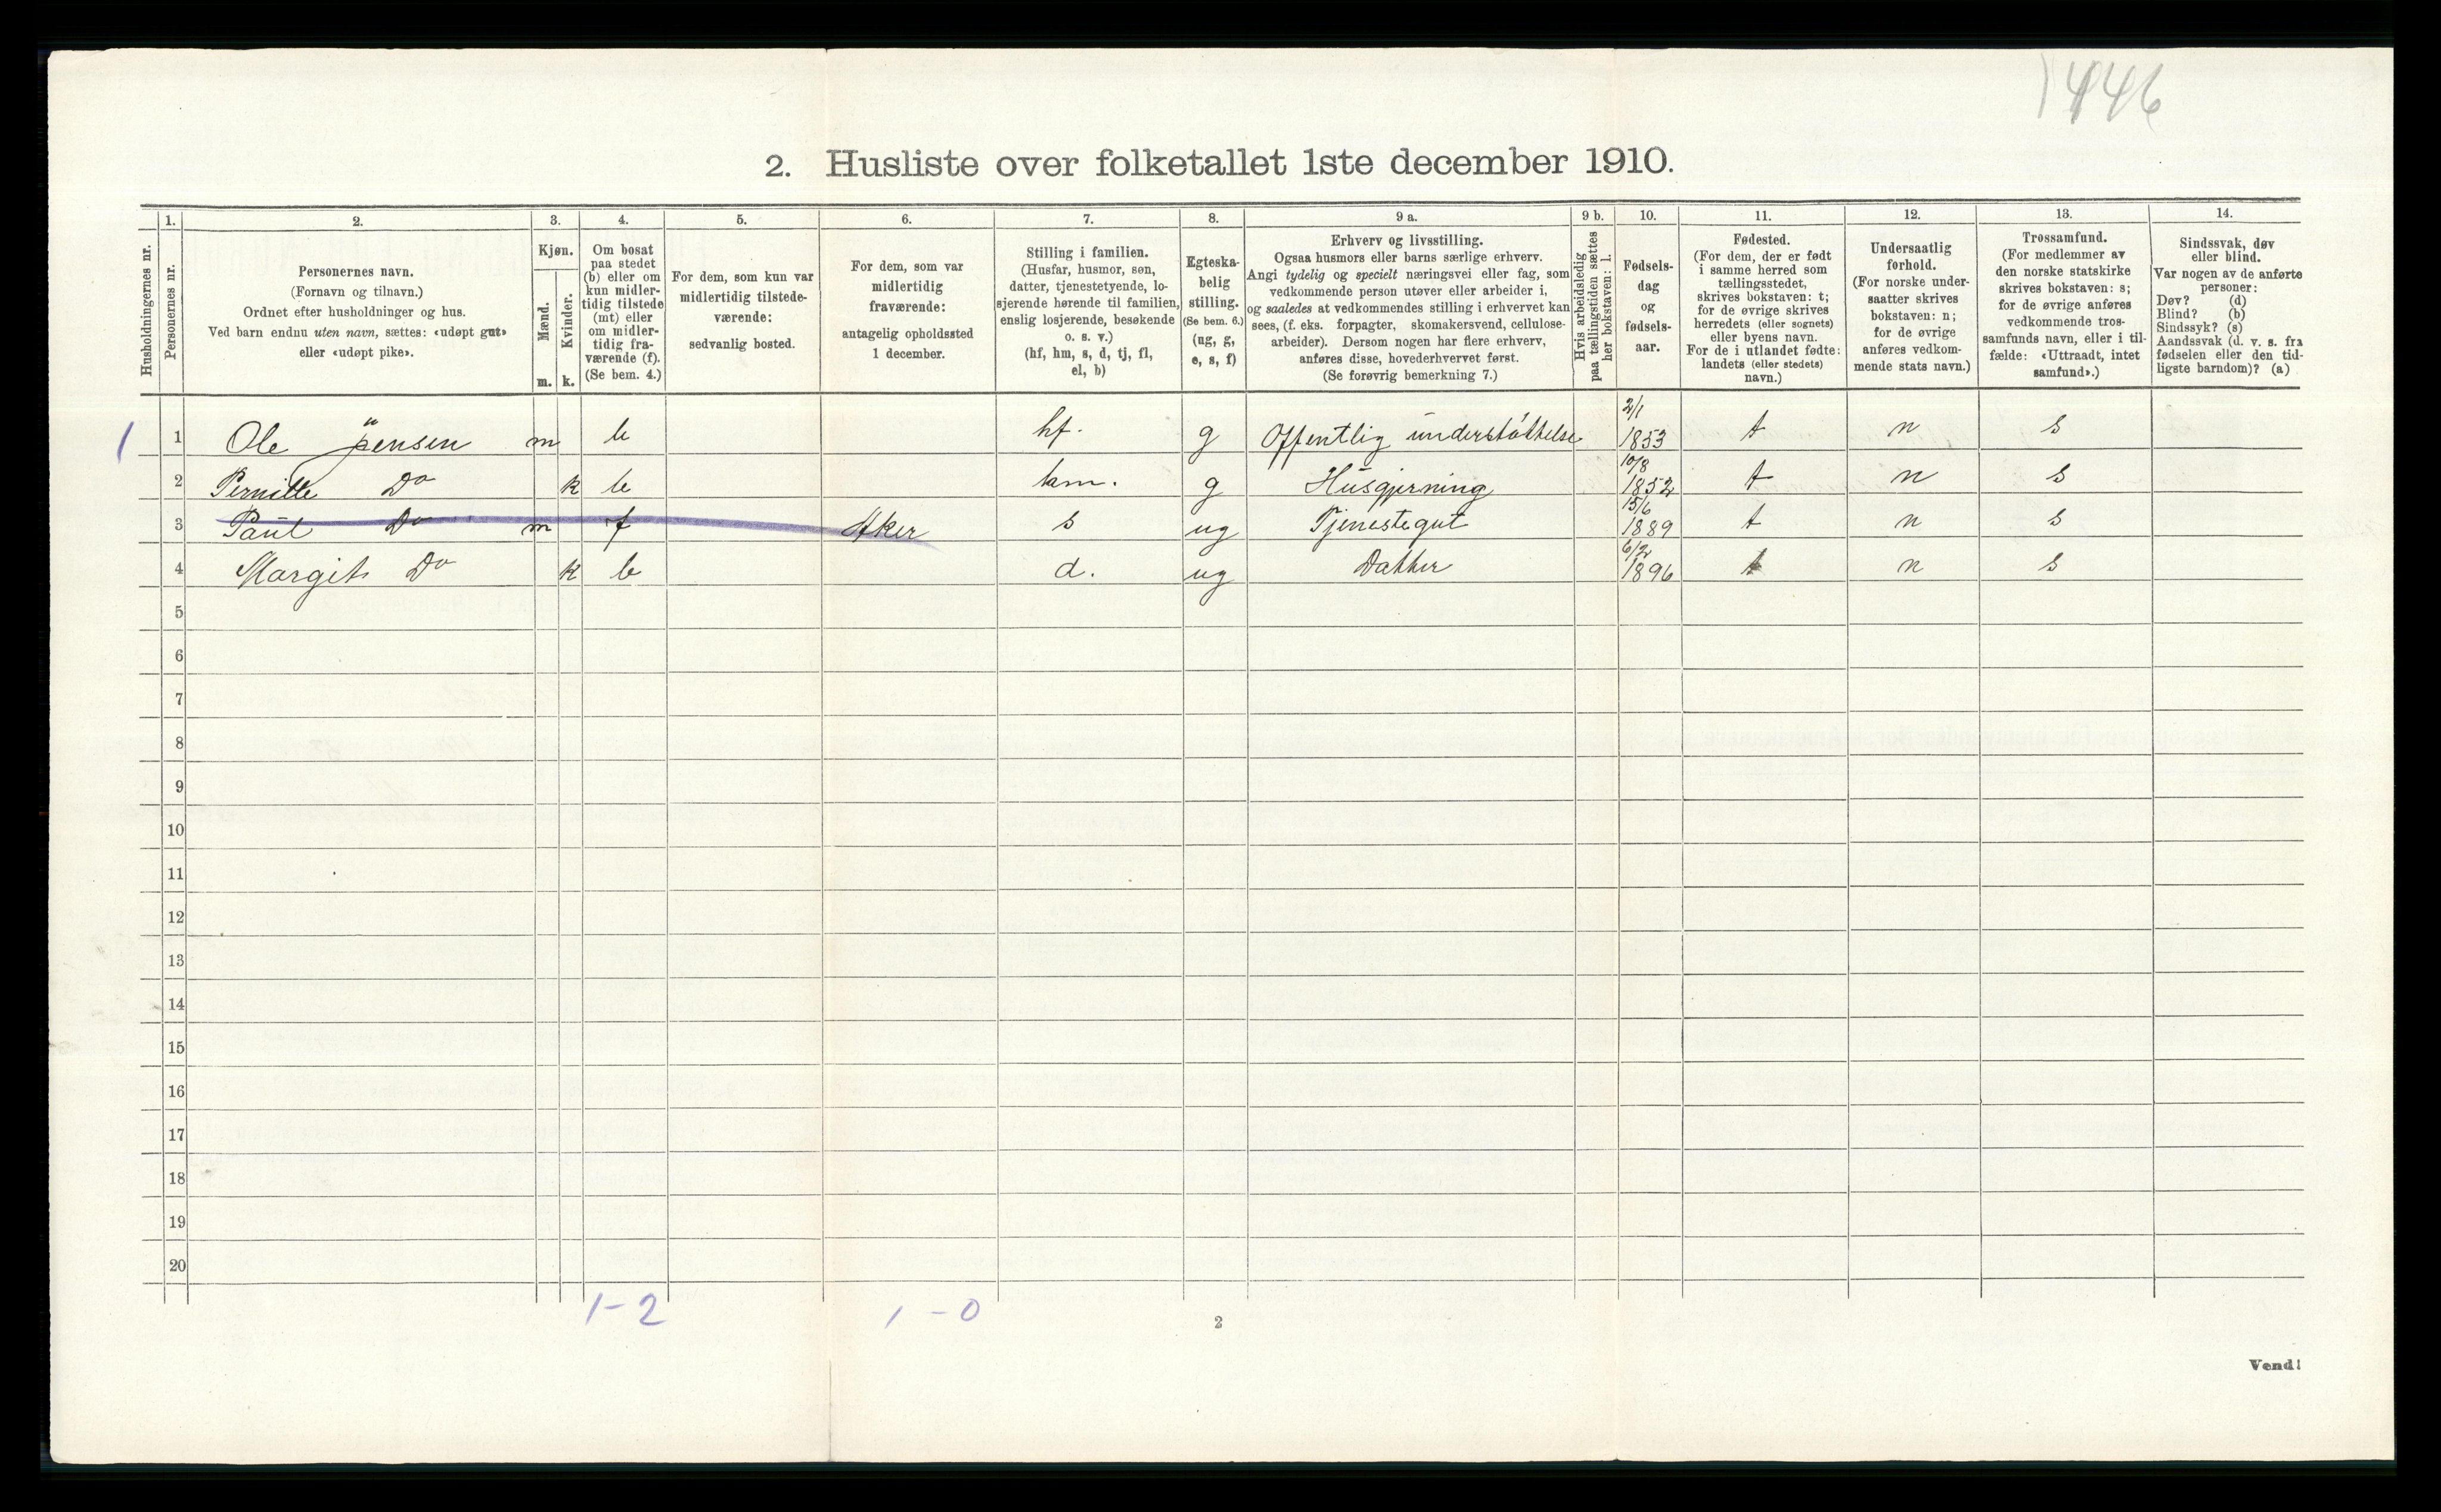 1446
2. Husliste over folketallet 1ste december 1910.
Husholdningernes nr.
1.
Personernes nr.
2.
Personernes navn.
(Fornavn og tilnavn.)
Ordnet efter husholdninger og hus.
Ved barn endnu uten navn, sættes: «udøpt gut»
eller «udøpt pike».
3.
Kjøn.
Mænd.
Kvinder.
m. k.
4.
Om bosat
paa stedet
(b) eller om
kun midler-
tidig tilstede
(mt) eller
om midler-
tidig fra-
værende (f).
(Se bem. 4.)
5.
For dem, som kun var
midlertidig tilstede-
værende:
sedvanlig bosted.
6.
For dem, som var
midlertidig
fraværende:
antagelig opholdssted
1 december.
7.
Stilling i familien.
(Husfar, husmor, søn,
datter, tjenestetyende, lo-
sjerende hørende til familien,
enslig losjerende, besøkende
o. s. v.)
(hf, hm, s, d, tj, fl,
el, b)
8.
Egteska-
belig
stilling.
(Se bem. 6.)
(ug, g,
e, s, f)
9 a.
Erhverv og livsstilling.
Ogsaa husmors eller barns særlige erhverv.
Angi tydelig og specielt næringsvei eller fag, som
vedkommende person utøver eller arbeider i,
og saaledes at vedkommendes stilling i erhvervet kan
sees, (f. eks. forpagter, skomakersvend, cellulose-
arbeider). Dersom nogen har flere erhverv,
anføres disse, hovederhvervet først.
(Se forøvrig bemerkning 7.)
9 b.
Hvis arbeidsledig
paa tællingstiden sættes
her bokstaven: l.
10.
Fødsels-
dag
og
fødsels-
aar.
11.
Fødested.
(For dem, der er født
i samme herred som
tællingsstedet,
skrives bokstaven: t;
for de øvrige skrives
herredets (eller sognets)
eller byens navn.
For de i utlandet fødte:
landets (eller stedets)
navn.)
12.
Undersaatlig
forhold.
(For norske under-
saatter skrives
bokstaven: n;
for de øvrige
anføres vedkom-
mende stats navn.)
13.
Trossamfund.
(For medlemmer av
den norske statskirke
skrives bokstaven: s;
for de øvrige anføres
vedkommende tros-
samfunds navn, eller i til-
fælde: «Uttraadt, intet
samfund».)
14.
Sindssvak, døv
eller blind.
Var nogen av de anførte
personer:
Døv? (d)
Blind? (b)
Sindssyk? (s)
Aandssvak (d. v. s. fra
fødselen eller den tid-
ligste barndom)? (a)
1 1 Ole Jensen m b hf. g Offentlig understøttelse 2/1 1853 t n s
2 Pernille Do k b hm. g Husgjerning 10/8 1852 t n s
3 Paul Do m f Aker s ug Tjenestegut 15/6 1889 t n s
4 Margit Do k b d. ug Datter 6/2 1896 t n s
5
6
7
8
9
10
11
12
13
14
15
16
17
18
19
20
1-2 1-0
2
Vend!